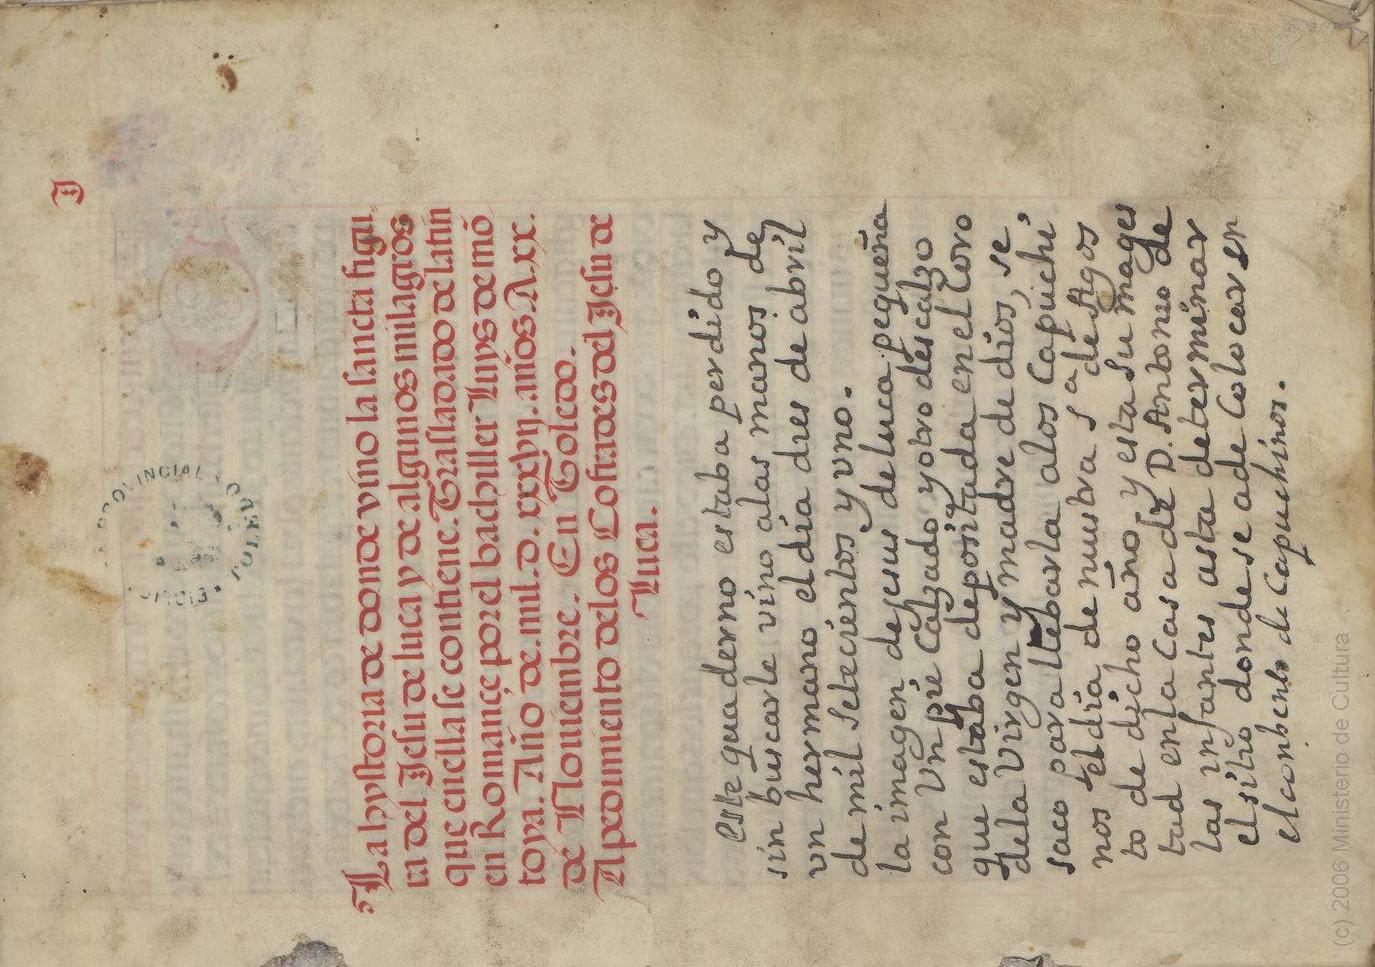 I
La hystoria de donde vino la sancta figu-
ra del Jesu de luca y de algunos milagros
que en ella se contiene. Trasladado de latin
en Romançe por el bachiller Luys de mõ
toya. Año de. mil. d. xxvij. años. A. xx.
de Nouiembre. En Toledo.
A pedimiento delos Cofrades del Jesu de
Luca.
este quaderno estaba perdido y
sin buscarle vino alas manos de
un hermano el dia dies de abril
de mil setecientos y uno.
la imagen de jesus de luca pequeña
con Un pie Calzado y otro descalzo
que estaba depositada en el Coro
dela Virgen y madre de dios, se
saco para llebarla alos Capuchi
nos el dia de nuestra Sa de Agos
to de dicho año y esta su mages
tad en la Casa de D. Antonio de
las infantes asta determinar
el sitio donde se a de Colocar en
el conbento de Capuchinos.
PROVINCIAL
TOLED
(c) 2006 Ministerio de Cultura